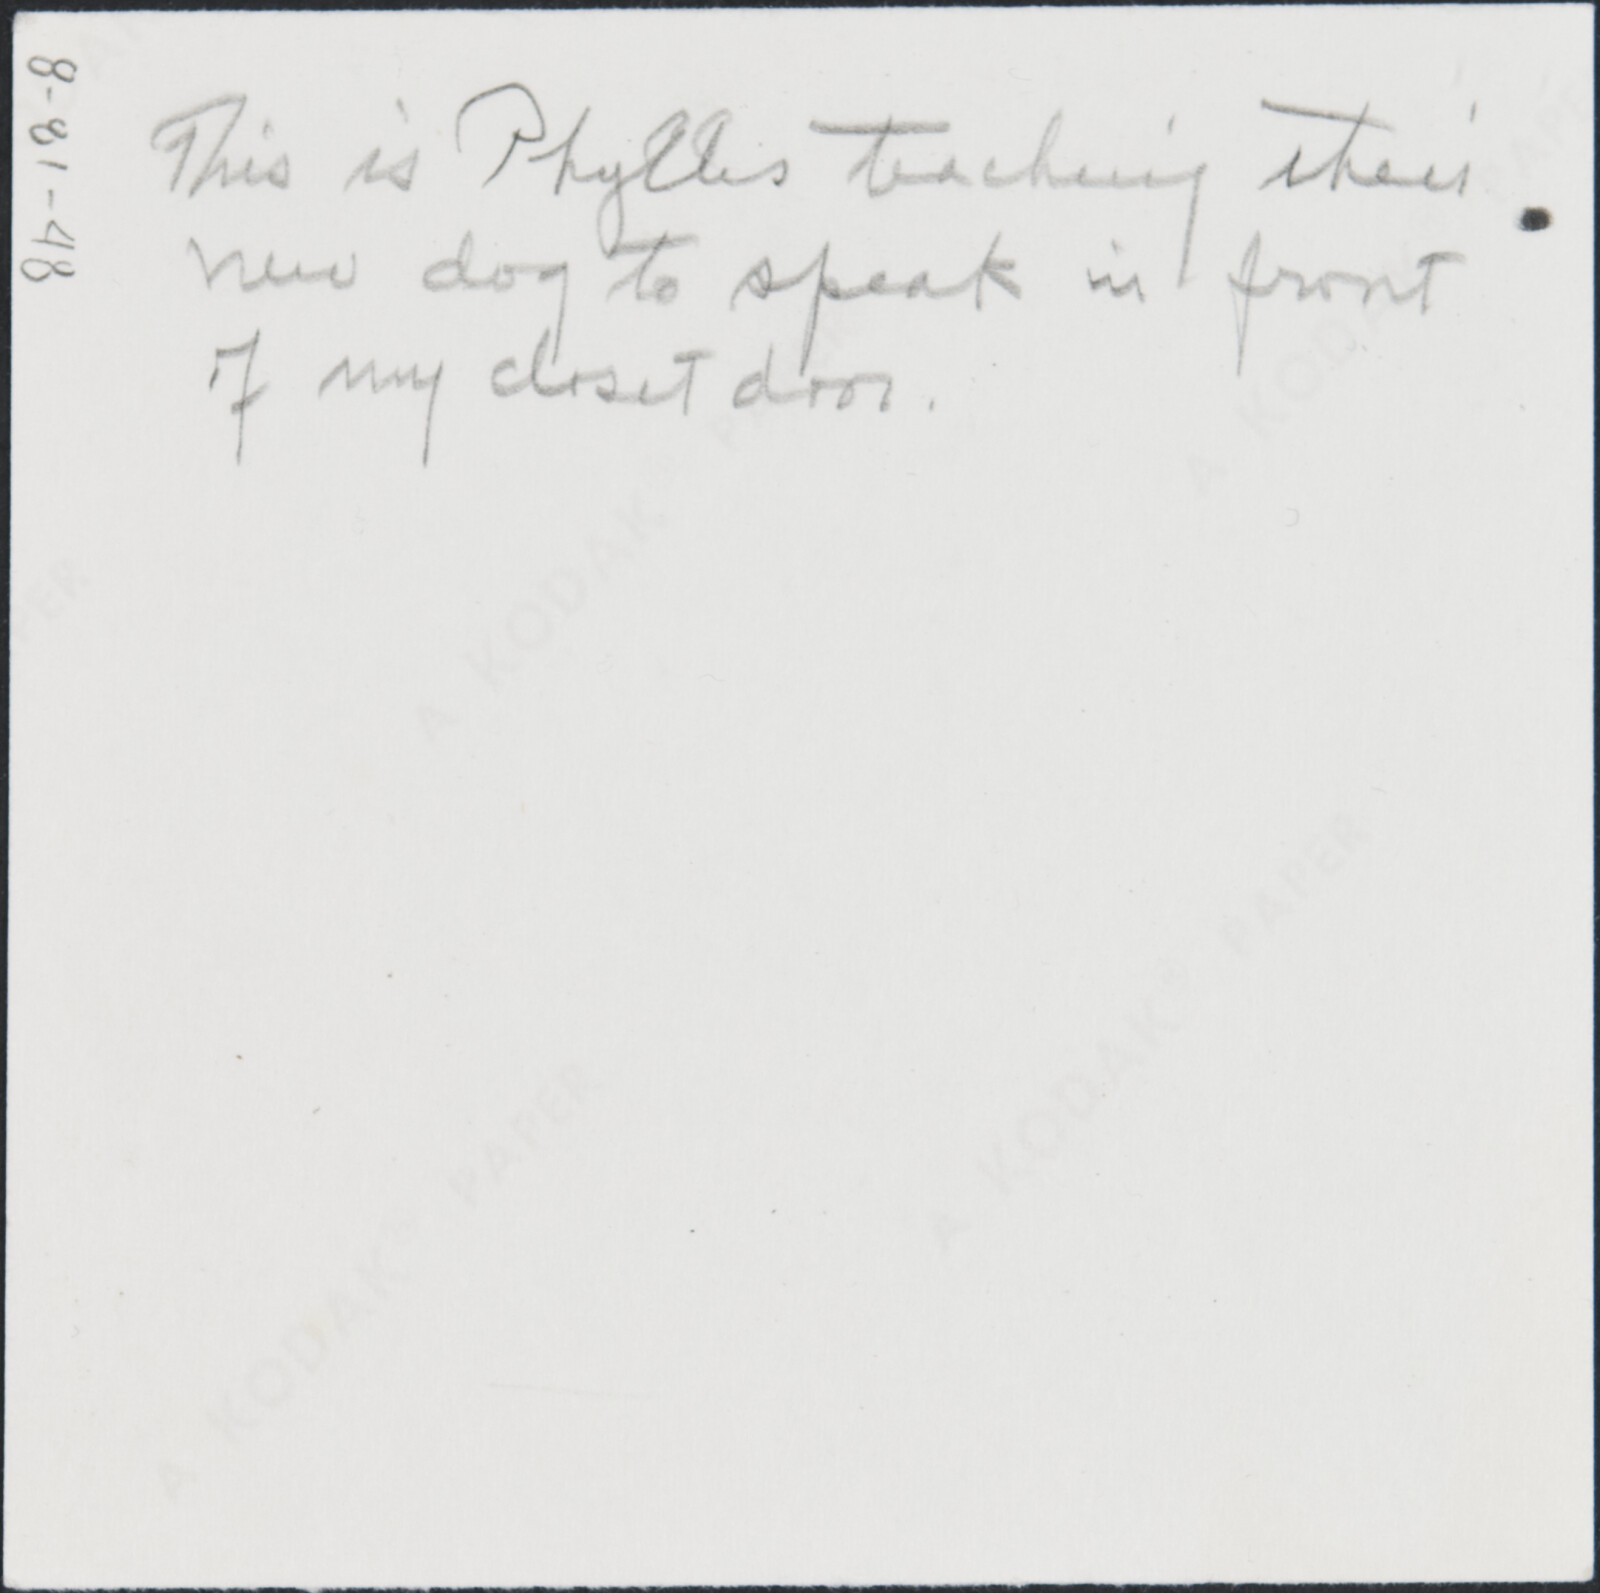 8-81-48
This is Phyllis teaching their
new dog to speak in front
of my closet door.
A KODAK PAPER
A KODAK
A KODAK PAPER
A KODAK PAPER
PAPER